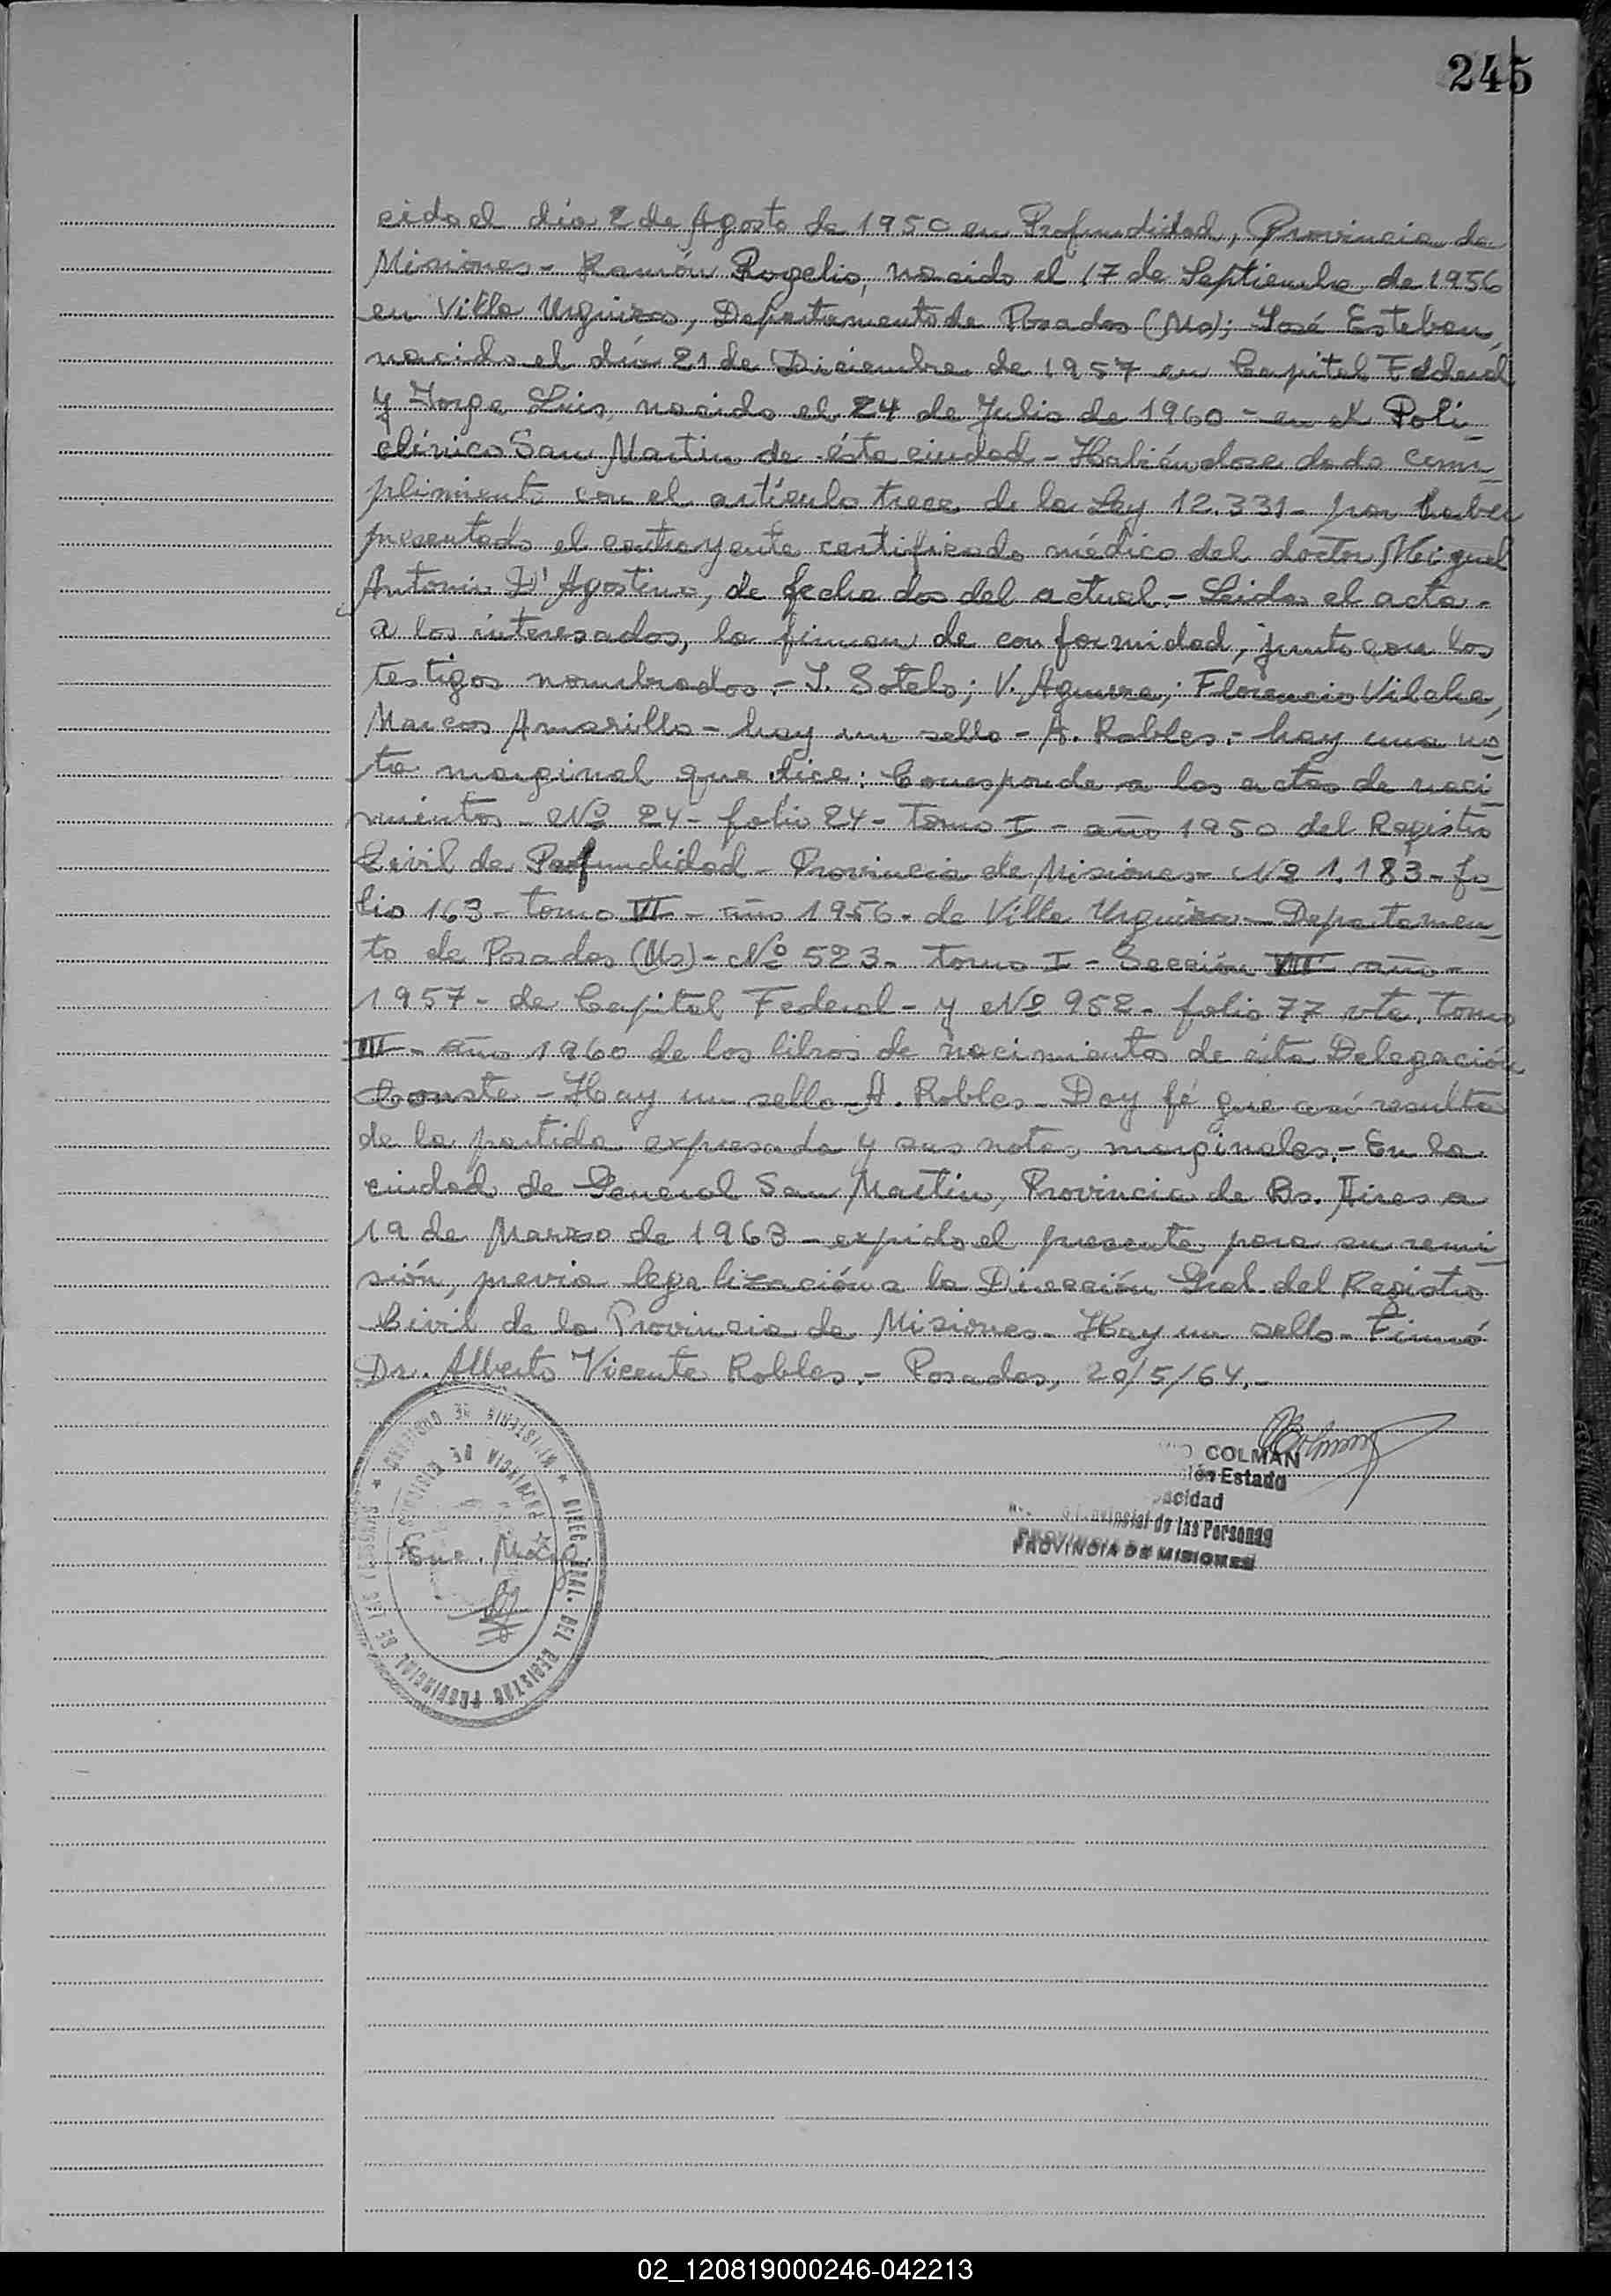 245
cido el día 2 de Agosto de 1950 en Profundidad, Provincia de
Misiones - Ramón Rogelio, nacido el 17 de Septiembre de 1956
en Villa Urquiza, Departamento de Posadas (Ms); José Esteban,
nacido el día 21 de Diciembre de 1957 en Capital Federal
y Jorge Luis, nacido el 24 de Julio de 1960 - en el Poli-
clínico San Martin de ésta ciudad - Habiéndose dado cum-
plimiento con el artículo trece de la Ley 12.331 - por haber
presentado el contrayente certificado médico del doctor Miguel
Antonio D'Agostino, de fecha dos del actual.- Leida el acta -
a los interesados, la firman de conformidad, junto con los
testigos nombrados.- J. Sotelo; V. Aguirre; Florencio Vilaha,
Marcos Amarillo - hay un sello - A. Robles.- hay una no-
ta marginal que dice: Corresponde a las actas de naci-
mientos - Nº 24 - folio 24 - tomo I - año 1950 del Registro
Civil de Profundidad - Provincia de Misiones - Nº 1.183 - fo-
lio 163 - tomo VI - año 1956 - de Villa Urquiza - Departamen-
to de Posadas (Ms) - Nº 523 - tomo I - Sección año -
1957 - de Capital Federal - y Nº 952 - folio 77 vta. tomo
III - año 1960 de los libros de nacimientos de ésta Delegación
Conste - Hay un sello - A. Robles - Doy fé que así resulta
de la partida expresada y sus notas marginales.- En la
ciudad de General San Martin, Provincia de Bs. Aires a
19 de Marzo de 1963 - expido el presente para su remi-
sión, previa legalización a la Dirección Gral. del Registro
Civil de la Provincia de Misiones - Hay un sello - Firmó
Dr. Alberto Vicente Robles.- Posadas, 20/5/64.-
COLMAN
ión Estado
acidad
Provincial de las Personas
PROVINCIA DE MISIONES
MINISTERIO DE GOBIERNO * DIREC. GRAL. DEL REGISTRO PROVINCIAL DE LAS PERSONAS *
PROVINCIA DE MISIONES
02_120819000246-042213